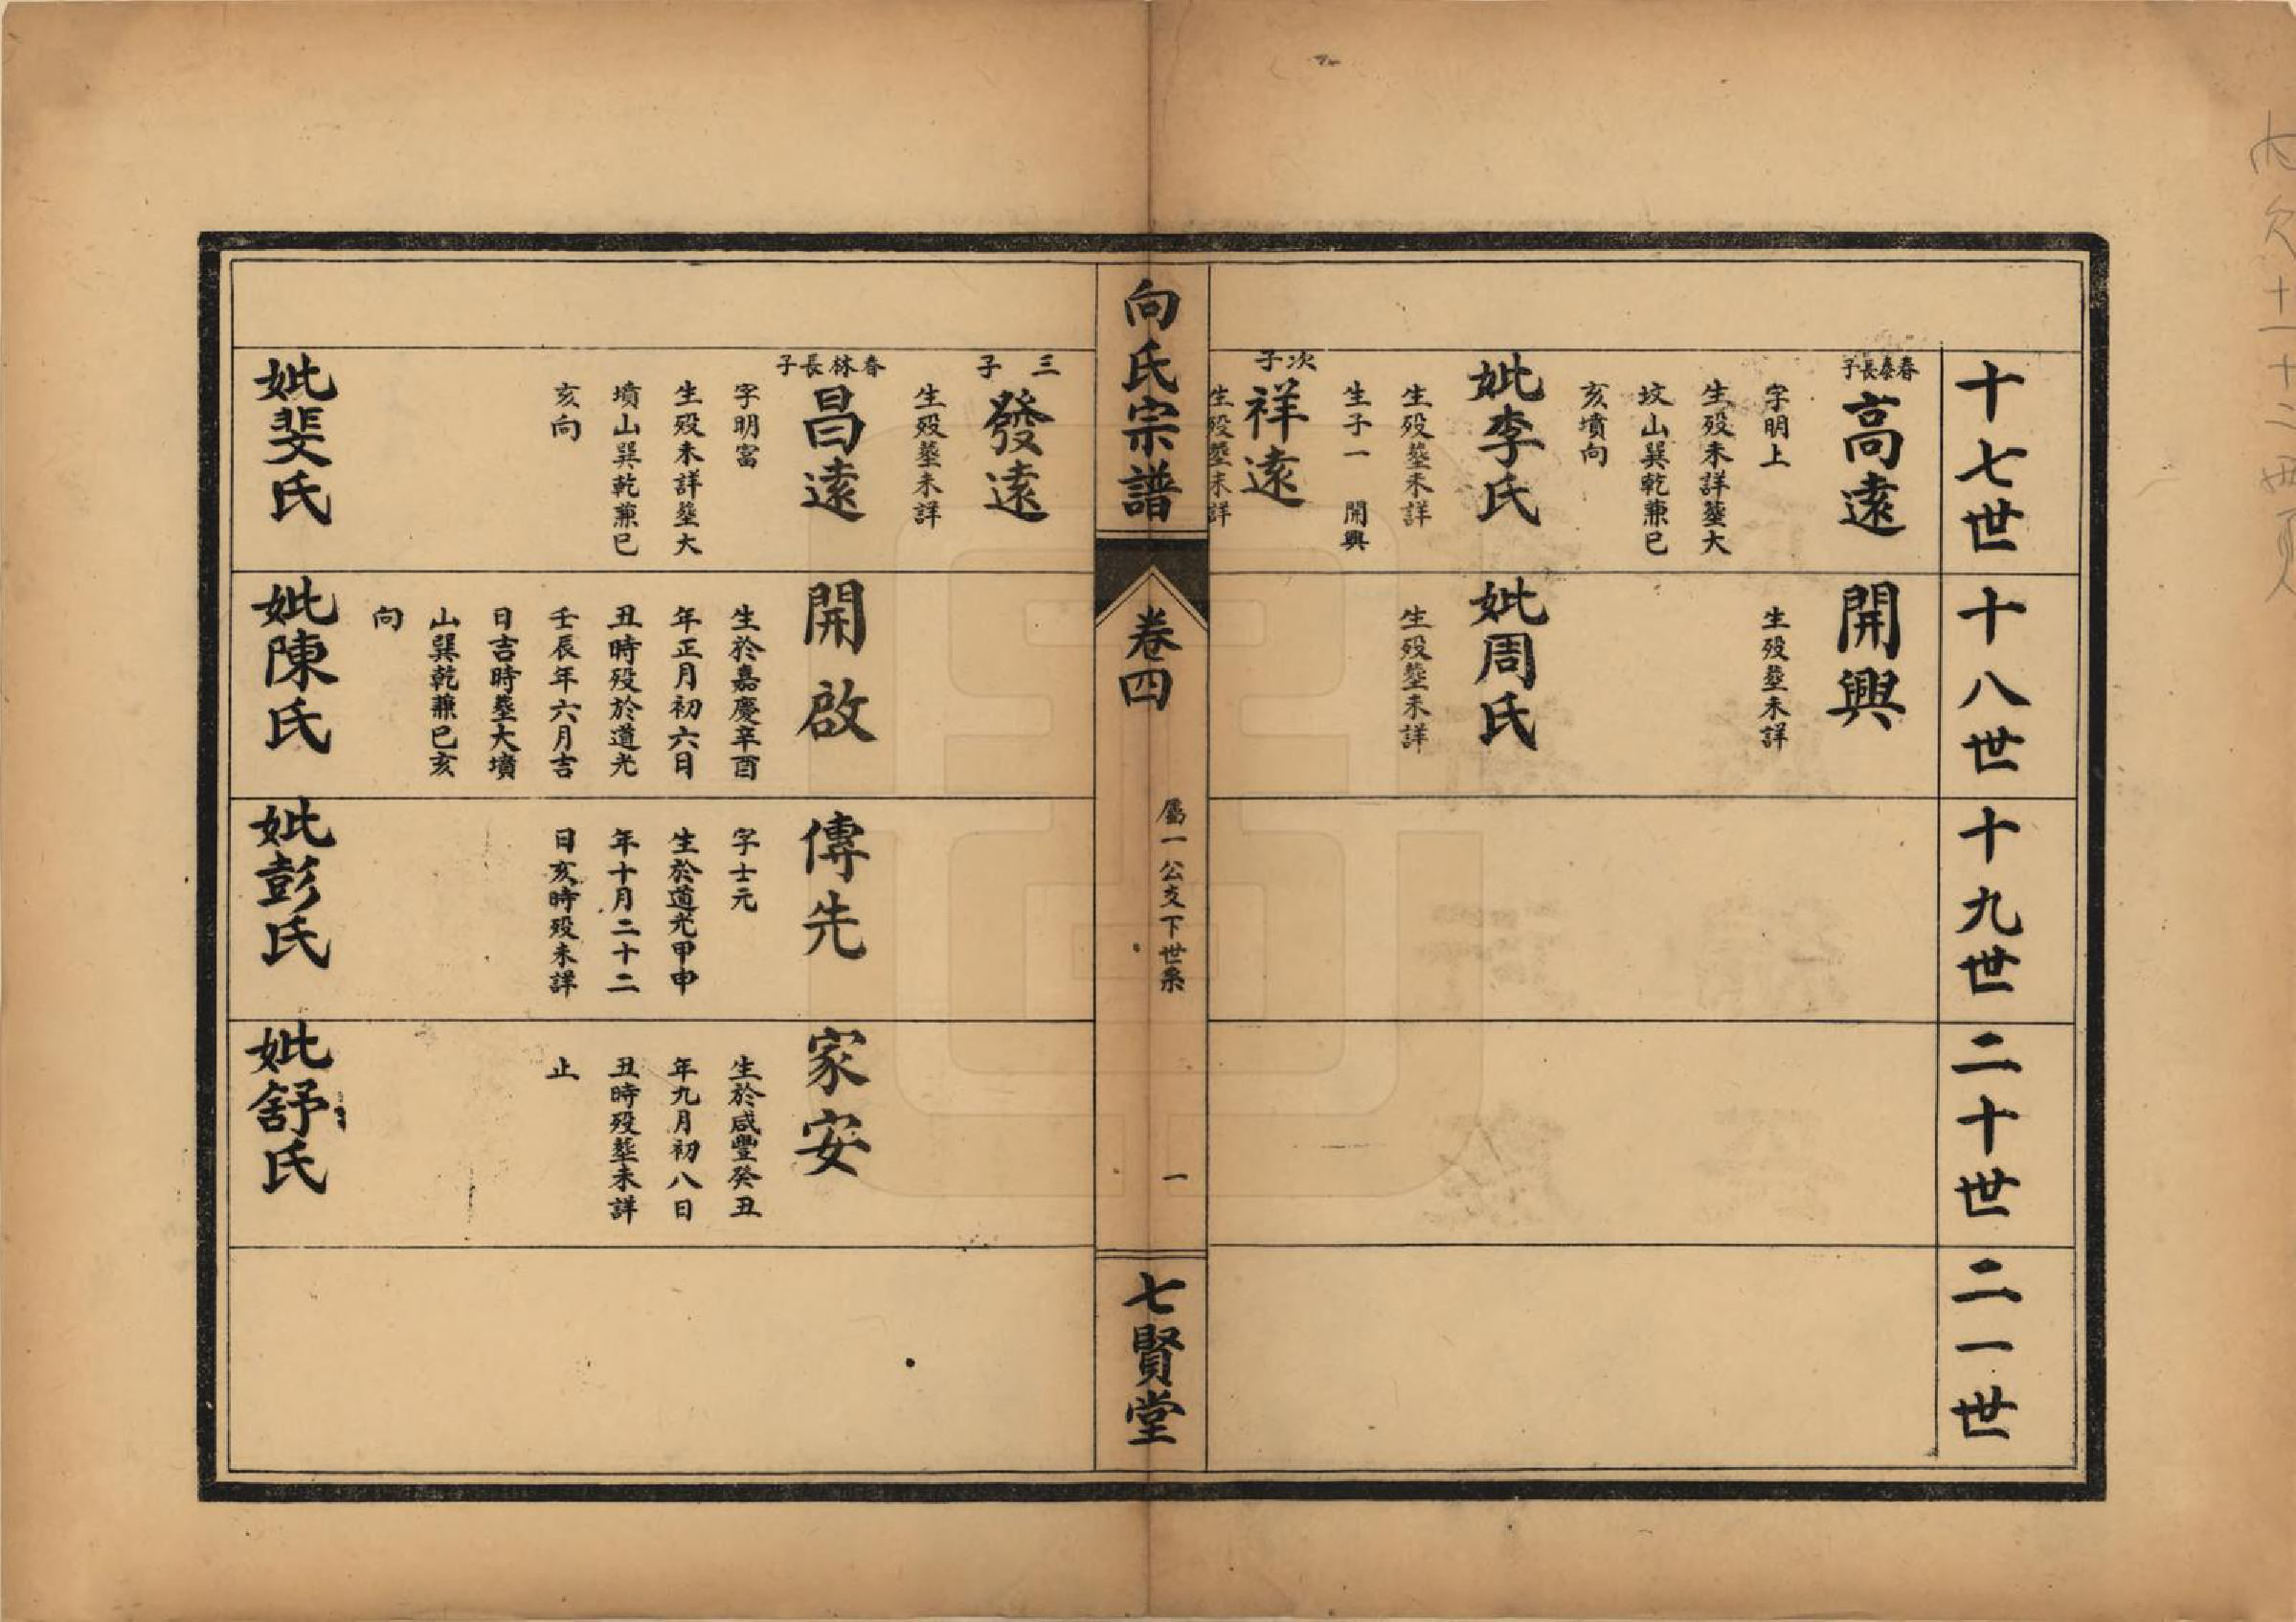 十七世
十八世
十九世
二十世
二一世
春泰長子
高遠
字明上
生歿未詳塟大
坟山巽乾兼巳
亥墳向
妣李氏
生歿塟未詳
生子一 開興
次子
祥遠
生歿塟未詳
開興
生歿塟未詳
妣周氏
生歿塟未詳
向氏宗譜
卷四
屬一公支下世系
一
七賢堂
三子
發遠
生歿塟未詳
春林長子
昌遠
字明富
生歿未詳塟大
墳山巽乾兼巳
亥向
妣婓氏
開啟
生於嘉慶辛酉
年正月初六日
丑時歿於道光
壬辰年六月吉
日吉時塟大墳
山巽乾兼巳亥
向
妣陳氏
傳先
字士元
生於道光甲申
年十月二十二
日亥時歿未詳
妣彭氏
家安
生於咸豐癸丑
年九月初八日
丑時歿塟未詳
止
妣舒氏